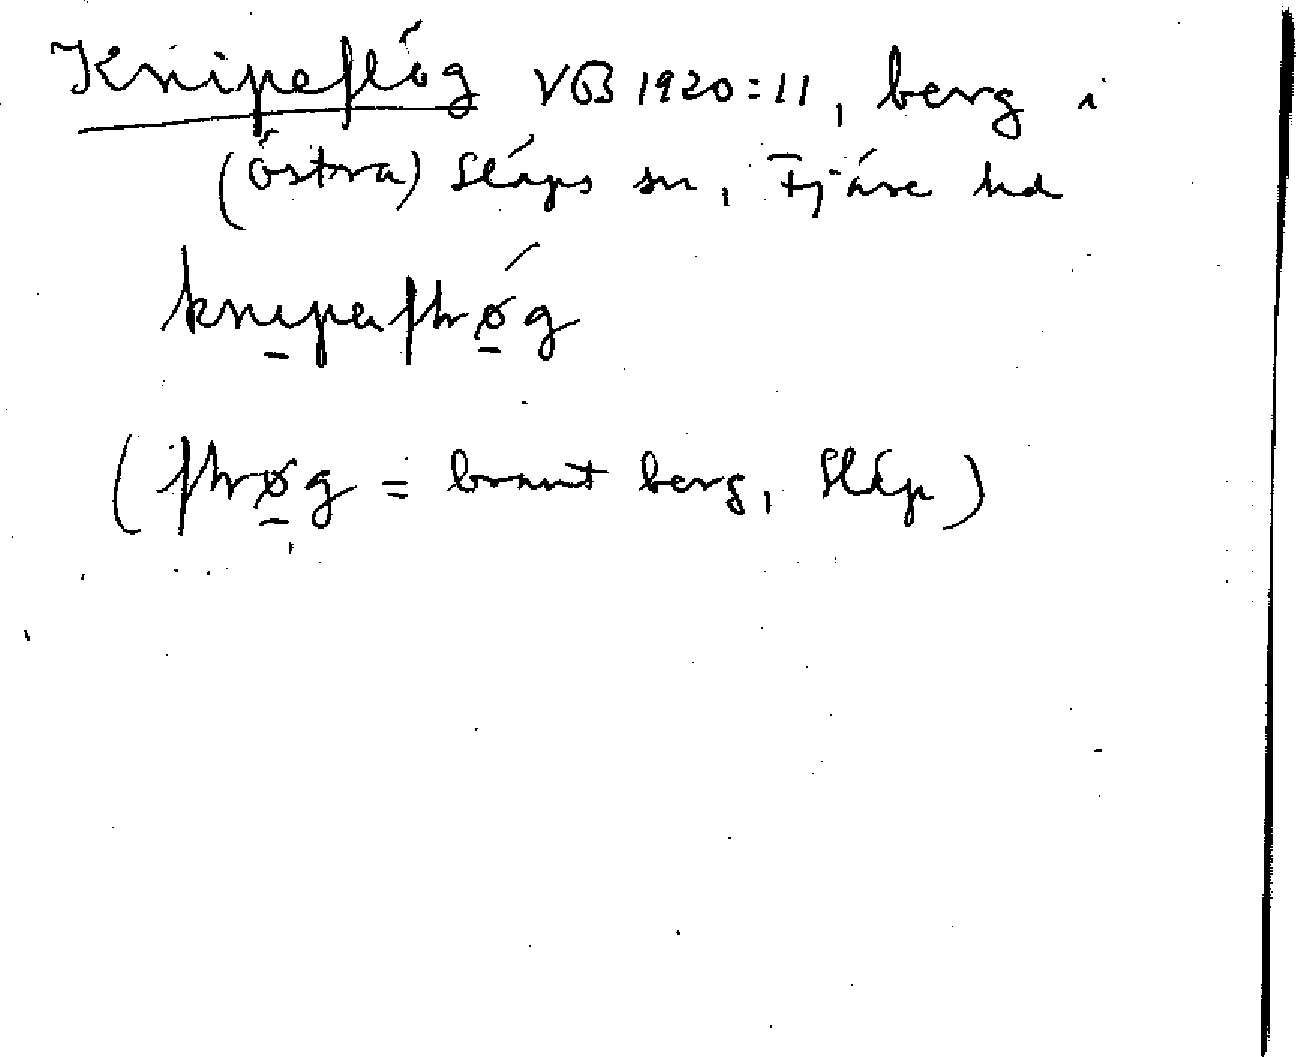 Knipeflög VB 1920:11, berg i
(östra) Släps sn, Fjäre hd
(= brant berg, Släp)